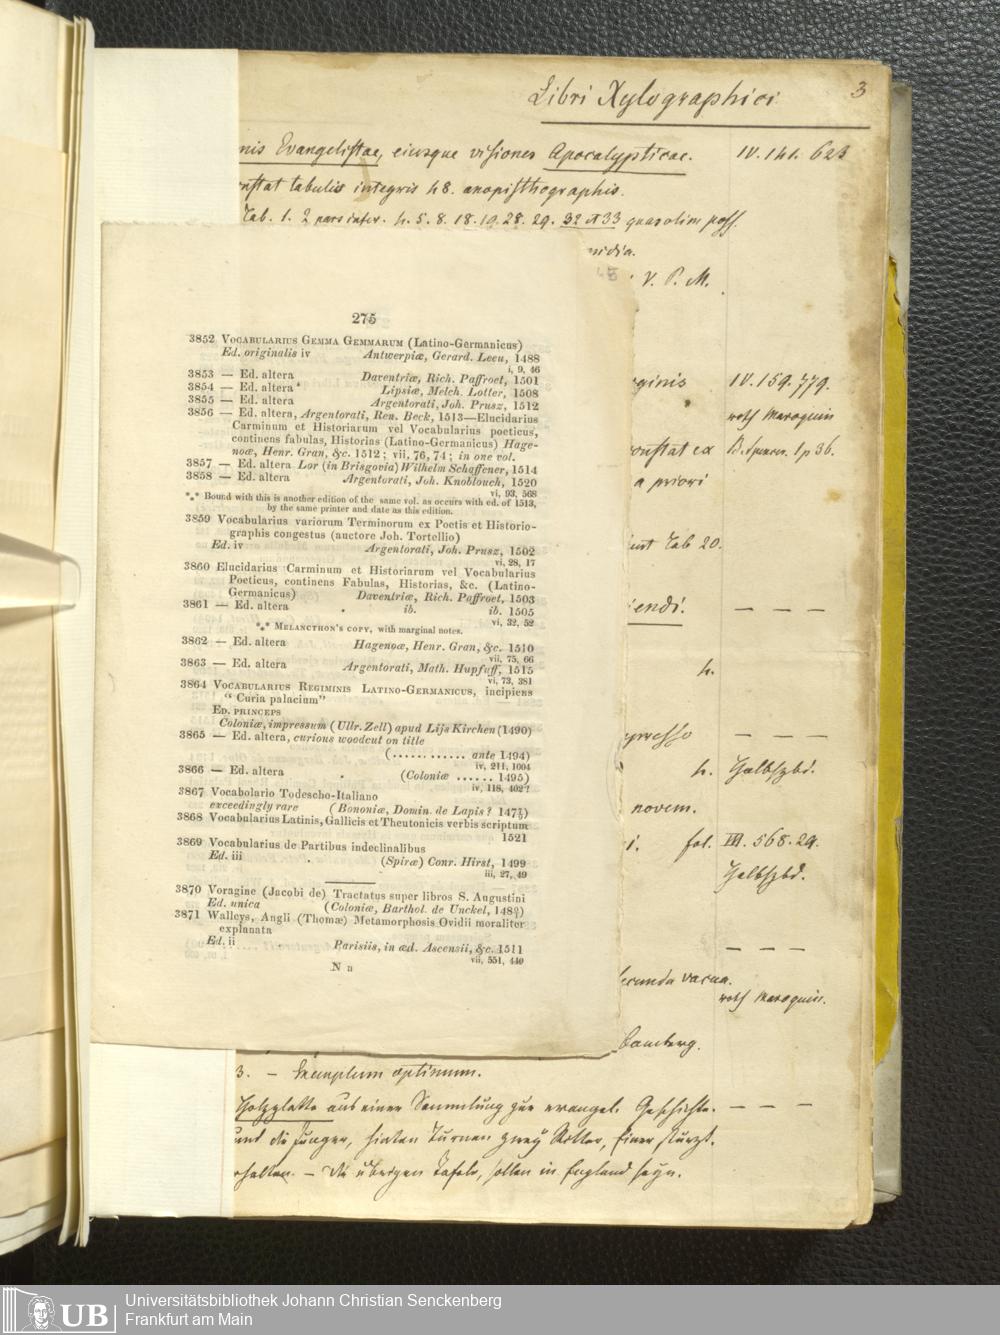 3
Libri Xylographici
nis Evangelistae, eiusque visiones Apocalypticae. IV. 141. 623
nstat tabulis integris 48. anopisthographis.
Tab. 1. 2 pars infer. 4. 5. 8. 18. 19. 28. 29. 32 et 33 quas olim poss.
midia.
45
V. P. M.
275
3852 Vocabularius Gemma Gemmarum (Latino-Germanicus)
Ed. originalis iv Antwerpiæ, Gerard. Leeu, 1488
i, 9, 46
3853 — Ed. altera Daventriæ, Rich. Paffroet, 1501
3854 — Ed. altera Lipsiæ, Melch. Lotter, 1508
3855 — Ed. altera Argentorati, Joh. Prusz, 1512
3856 — Ed. altera, Argentorati, Ren. Beck, 1513—Elucidarius
Carminum et Historiarum vel Vocabularius poeticus,
continens fabulas, Historias (Latino-Germanicus) Hage-
noæ, Henr. Gran, &c. 1512; vii, 76, 74; in one vol.
3857 — Ed. altera Lor (in Brisgovia) Wilhelm Schaffener, 1514
3858 — Ed. altera Argentorati, Joh. Knoblouch, 1520
vi, 93, 568
*** Bound with this is another edition of the same vol. as occurs with ed. of 1513,
by the same printer and date as this edition.
3859 Vocabularius variorum Terminorum ex Poetis et Historio-
graphis congestus (auctore Joh. Tortellio)
Ed. iv Argentorati, Joh. Prusz, 1502
vi, 28, 17
3860 Elucidarius Carminum et Historiarum vel Vocabularius
Poeticus, continens Fabulas, Historias, &c. (Latino-
Germanicus) Daventriæ, Rich. Paffroet, 1503
3861 — Ed. altera . ib. ib. 1505
vi, 32, 52
*** Melancthon's copy, with marginal notes.
3862 — Ed. altera Hagenoæ, Henr. Gran, &c. 1510
vii, 75, 66
3863 — Ed. altera Argentorati, Math. Hupfuff, 1515
vi, 73, 381
3864 Vocabularius Regiminis Latino-Germanicus, incipiens
"Curia palacium"
Ed. princeps
Coloniæ, impressum (Ullr. Zell) apud Lijs Kirchen (1490)
3865 — Ed. altera, curious woodcut on title
(............ ante 1494)
iv, 211, 1004
3866 — Ed. altera . (Coloniæ ...... 1495)
iv, 118, 402?
3867 Vocabolario Todescho-Italiano
exceedingly rare (Bononiæ, Domin. de Lapis? 147⅞)
3868 Vocabularius Latinis, Gallicis et Theutonicis verbis scriptum
1521
3869 Vocabularius de Partibus indeclinalibus
Ed. iii . (Spiræ) Conr. Hirst, 1499
iii, 27, 49
3870 Voragine (Jacobi de) Tractatus super libros S. Augustini
Ed. unica (Coloniæ, Barthol. de Unckel, 148⅔)
3871 Walleys, Angli (Thomæ) Metamorphosis Ovidii moraliter
explanata
Ed. ii Parisiis, in æd. Ascensii, &c. 1511
vii, 551, 440
N n
eginis IV. 159. 779.
roth Maroquin
constat ex B. Spencer. 1 p 36.
a priori
Tab 20.
iendi. — — —
4.
epresso — — —
4. Halbfzbd.
novem.
i. fol. III. 568. 29.
Halbfzbd.
— — —
secunda vacua.
roth Maroquin.
Bamberg.
3. — Exemplum optimum.
Holzplatte aus einer Sammlung zur evangel. Geschichte. — — —
und die Jünger, hinten Turnen zwey Ritter, einer stürzt.
halten. — die übrigen Tafeln, sollen in England seyn.
UB
Universitätsbibliothek Johann Christian Senckenberg
Frankfurt am Main